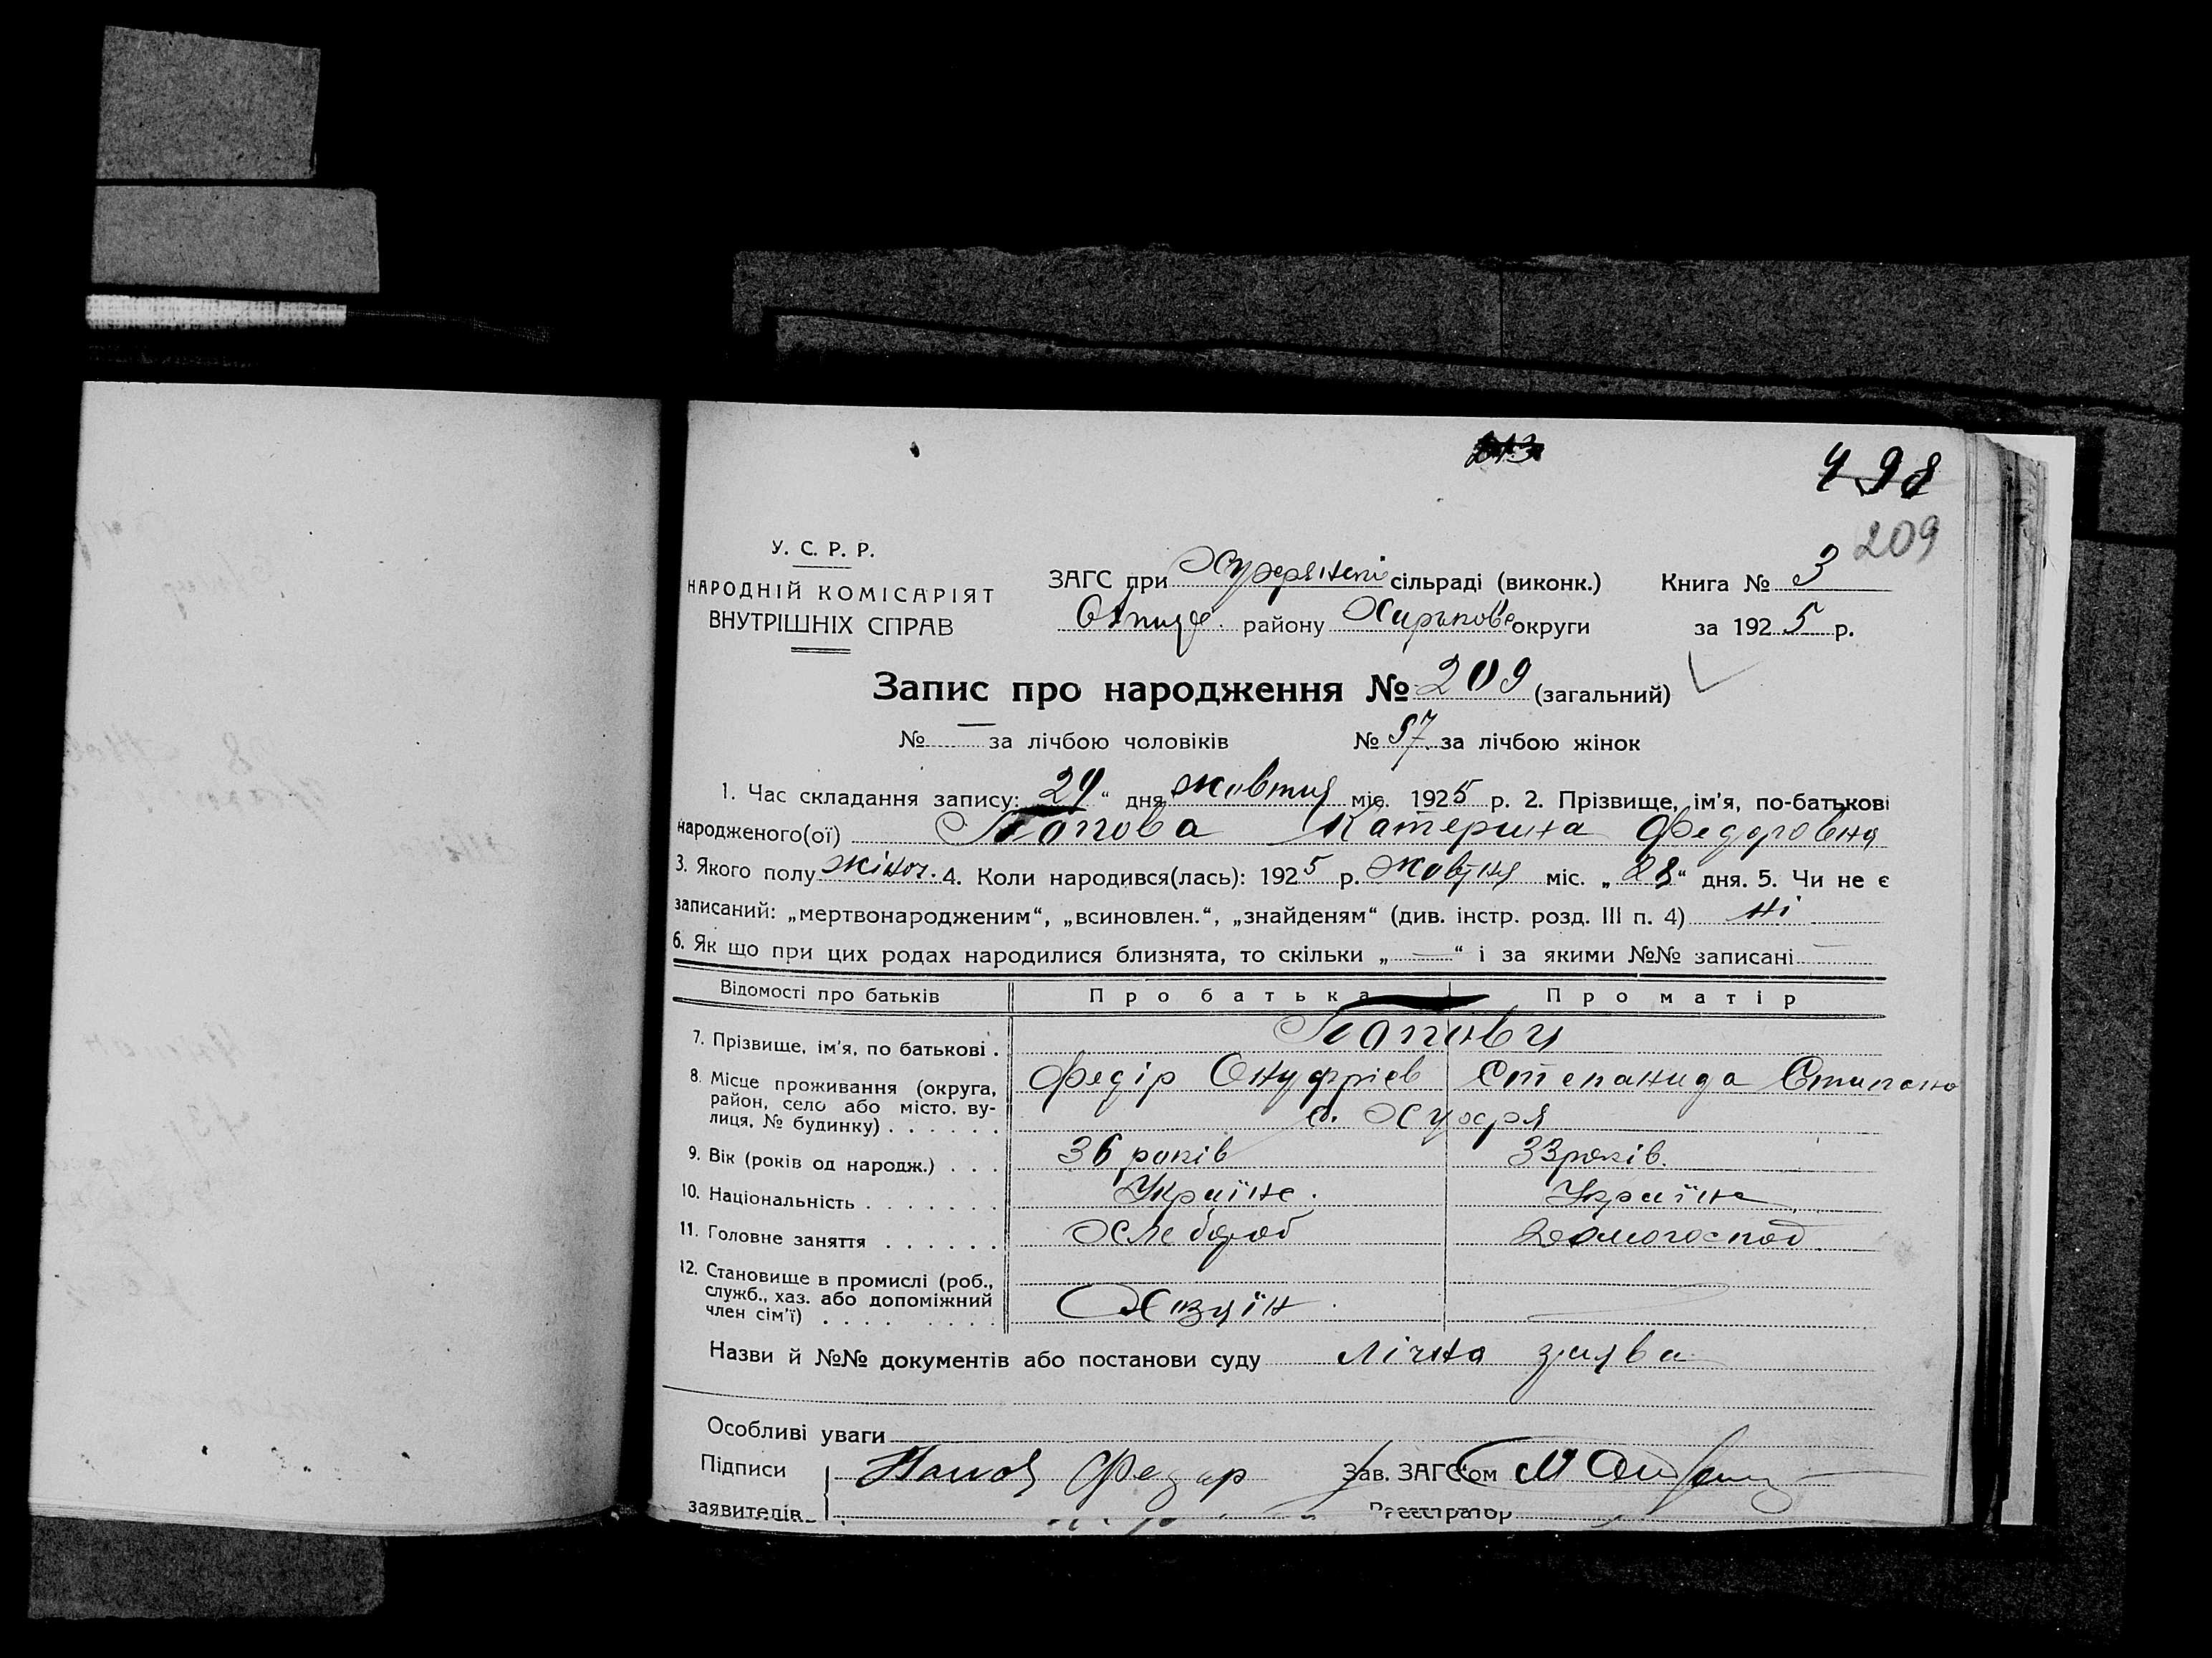 498
209
У. С. Р. Р.
НАРОДНІЙ КОМІСАРІЯТ
ВНУТРІШНІХ СПРАВ
ЗАГС при сільраді (виконк.)
району Харькове округи
Книга № 3
за 1925 р.
Запис про народження № 209 (загальний)
№ — за лічбою чоловіків № 97 за лічбою жінок
1. Час складання запису: 29 “ дня жовтня міс. 1925 р. 2. Прізвище, ім'я, по-батькові
народженого(ої) Попова Катерина Федоровна
3. Якого полу жіноч. 4. Коли народився(лась): 1925 р. Жовтня міс. „ 28 “ дня. 5. Чи не є
записаний: „мертвонародженим“, „всиновлен.“, „знайденям“ (див. інстр. розд. III п. 4) Ні
6. Як що при цих родах народилися близнята, то скільки „ — “ і за якими №№ записані —
Відомості про батьків Про батька Про матір
7. Прізвище, ім'я, по батькові . Попови
Федір Онуфріев Степанида Степано
8. Місце проживання (округа, район, село або місто, ву-
лиця, № будинку) . . . . . . с. Хухря
9. Вік (років од народж.) . . . 36 років 33 років.
10. Національність . . . . . . . Україне. Україне
11. Головне заняття . . . . . . Хлебороб Домогоспод.
12. Становище в промислі (роб.,
служб., хаз. або допоміжний
член сім'ї) . . . . . . . . Хазяїн. —
Назви й №№ документів або постанови суду лічна заява
Особливі уваги
Підписи Федор Зав. ЗАГС'ом
заявителів Реєстратор